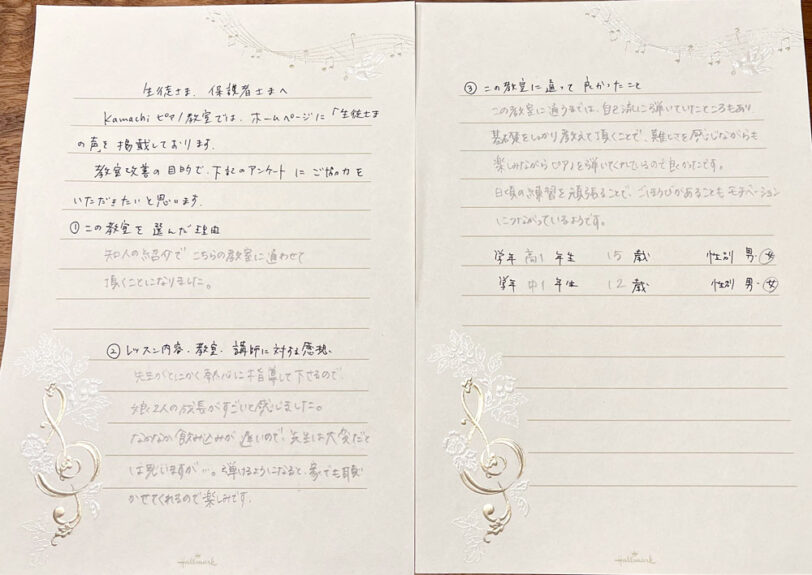 生徒さま、保護者さまへ
Kamachiピアノ教室では、ホームページに「生徒さま
の声」を掲載しております。
教室改善の目的で、下記のアンケートにご協力を
いただきたいと思います。
①この教室を選んだ理由
知人の紹介でこちらの教室に通わせて
頂くことになりました。
②レッスン内容、教室、講師に対する感想、
先生がとにかく熱心に指導して下さるので、
娘2人の成長がすごいと感じました。
なかなか飲み込みが遅いので、先生は大変だと
は思いますが…。弾けるようになると、家でも聴
かせてくれるので楽しみです。
Hallmark
③この教室に通って良かったこと
この教室に通うまでは、自己流に弾いていたところもあり
基礎をしっかり教えて頂くことで、難しさを感じながらも
楽しみながらピアノを弾いてくれているので良かったです。
日頃の練習を頑張ることで、ごほうびがあることもモチベーション
につながっているようです。
学年 高1年生 15歳 性別 男・女
学年 中1年生 12歳 性別 男・女
Hallmark